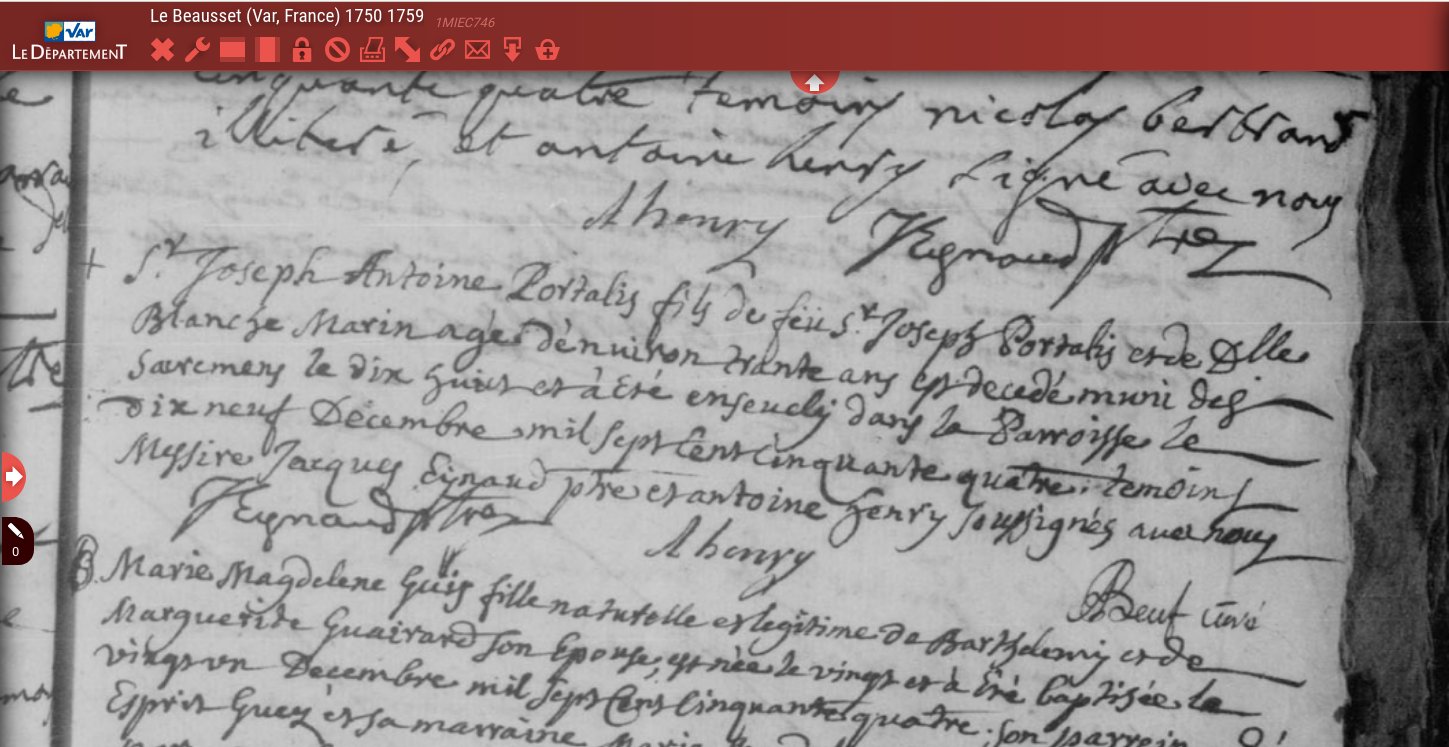 Le Beausset (Var, France) 1750 1759
1MIEC746
VAR
LE DÉPARTEMENT
0
cinquante quatre temoins nicolas bertrand
illiteré et antoine henry signé avec nous
A henry Eygnaud ptre
+ Sr. Joseph Antoine Portalis fils de feu Sr. Joseph Portalis et de Dlle
Blanche Marin agé d'enuiron trante ans est decedé muni des
Sacremens le dix huict et à été enseucly dans la Parroisse le
dix neuf Décembre mil sept Cent Cinquante quatre: temoins
Messire Jacques Eynaud ptre et antoine henry soussignés auec nous
Eygnaud ptre A henry
Beuf Curé
B Marie Magdelene Guis fille naturelle et legitime de Barthelemy et de
Marguerite Guairard son Epouse, est née le vingt et à été baptisée le
vingt un Decembre mil Sept Cent Cinquante quatre. son parrein
Esprit Guez et sa marraine Marie